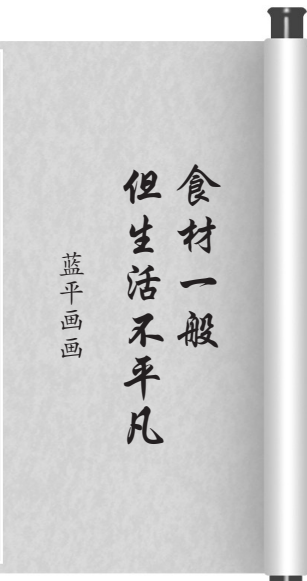 食材一般
但生活不平凡
蓝平画画